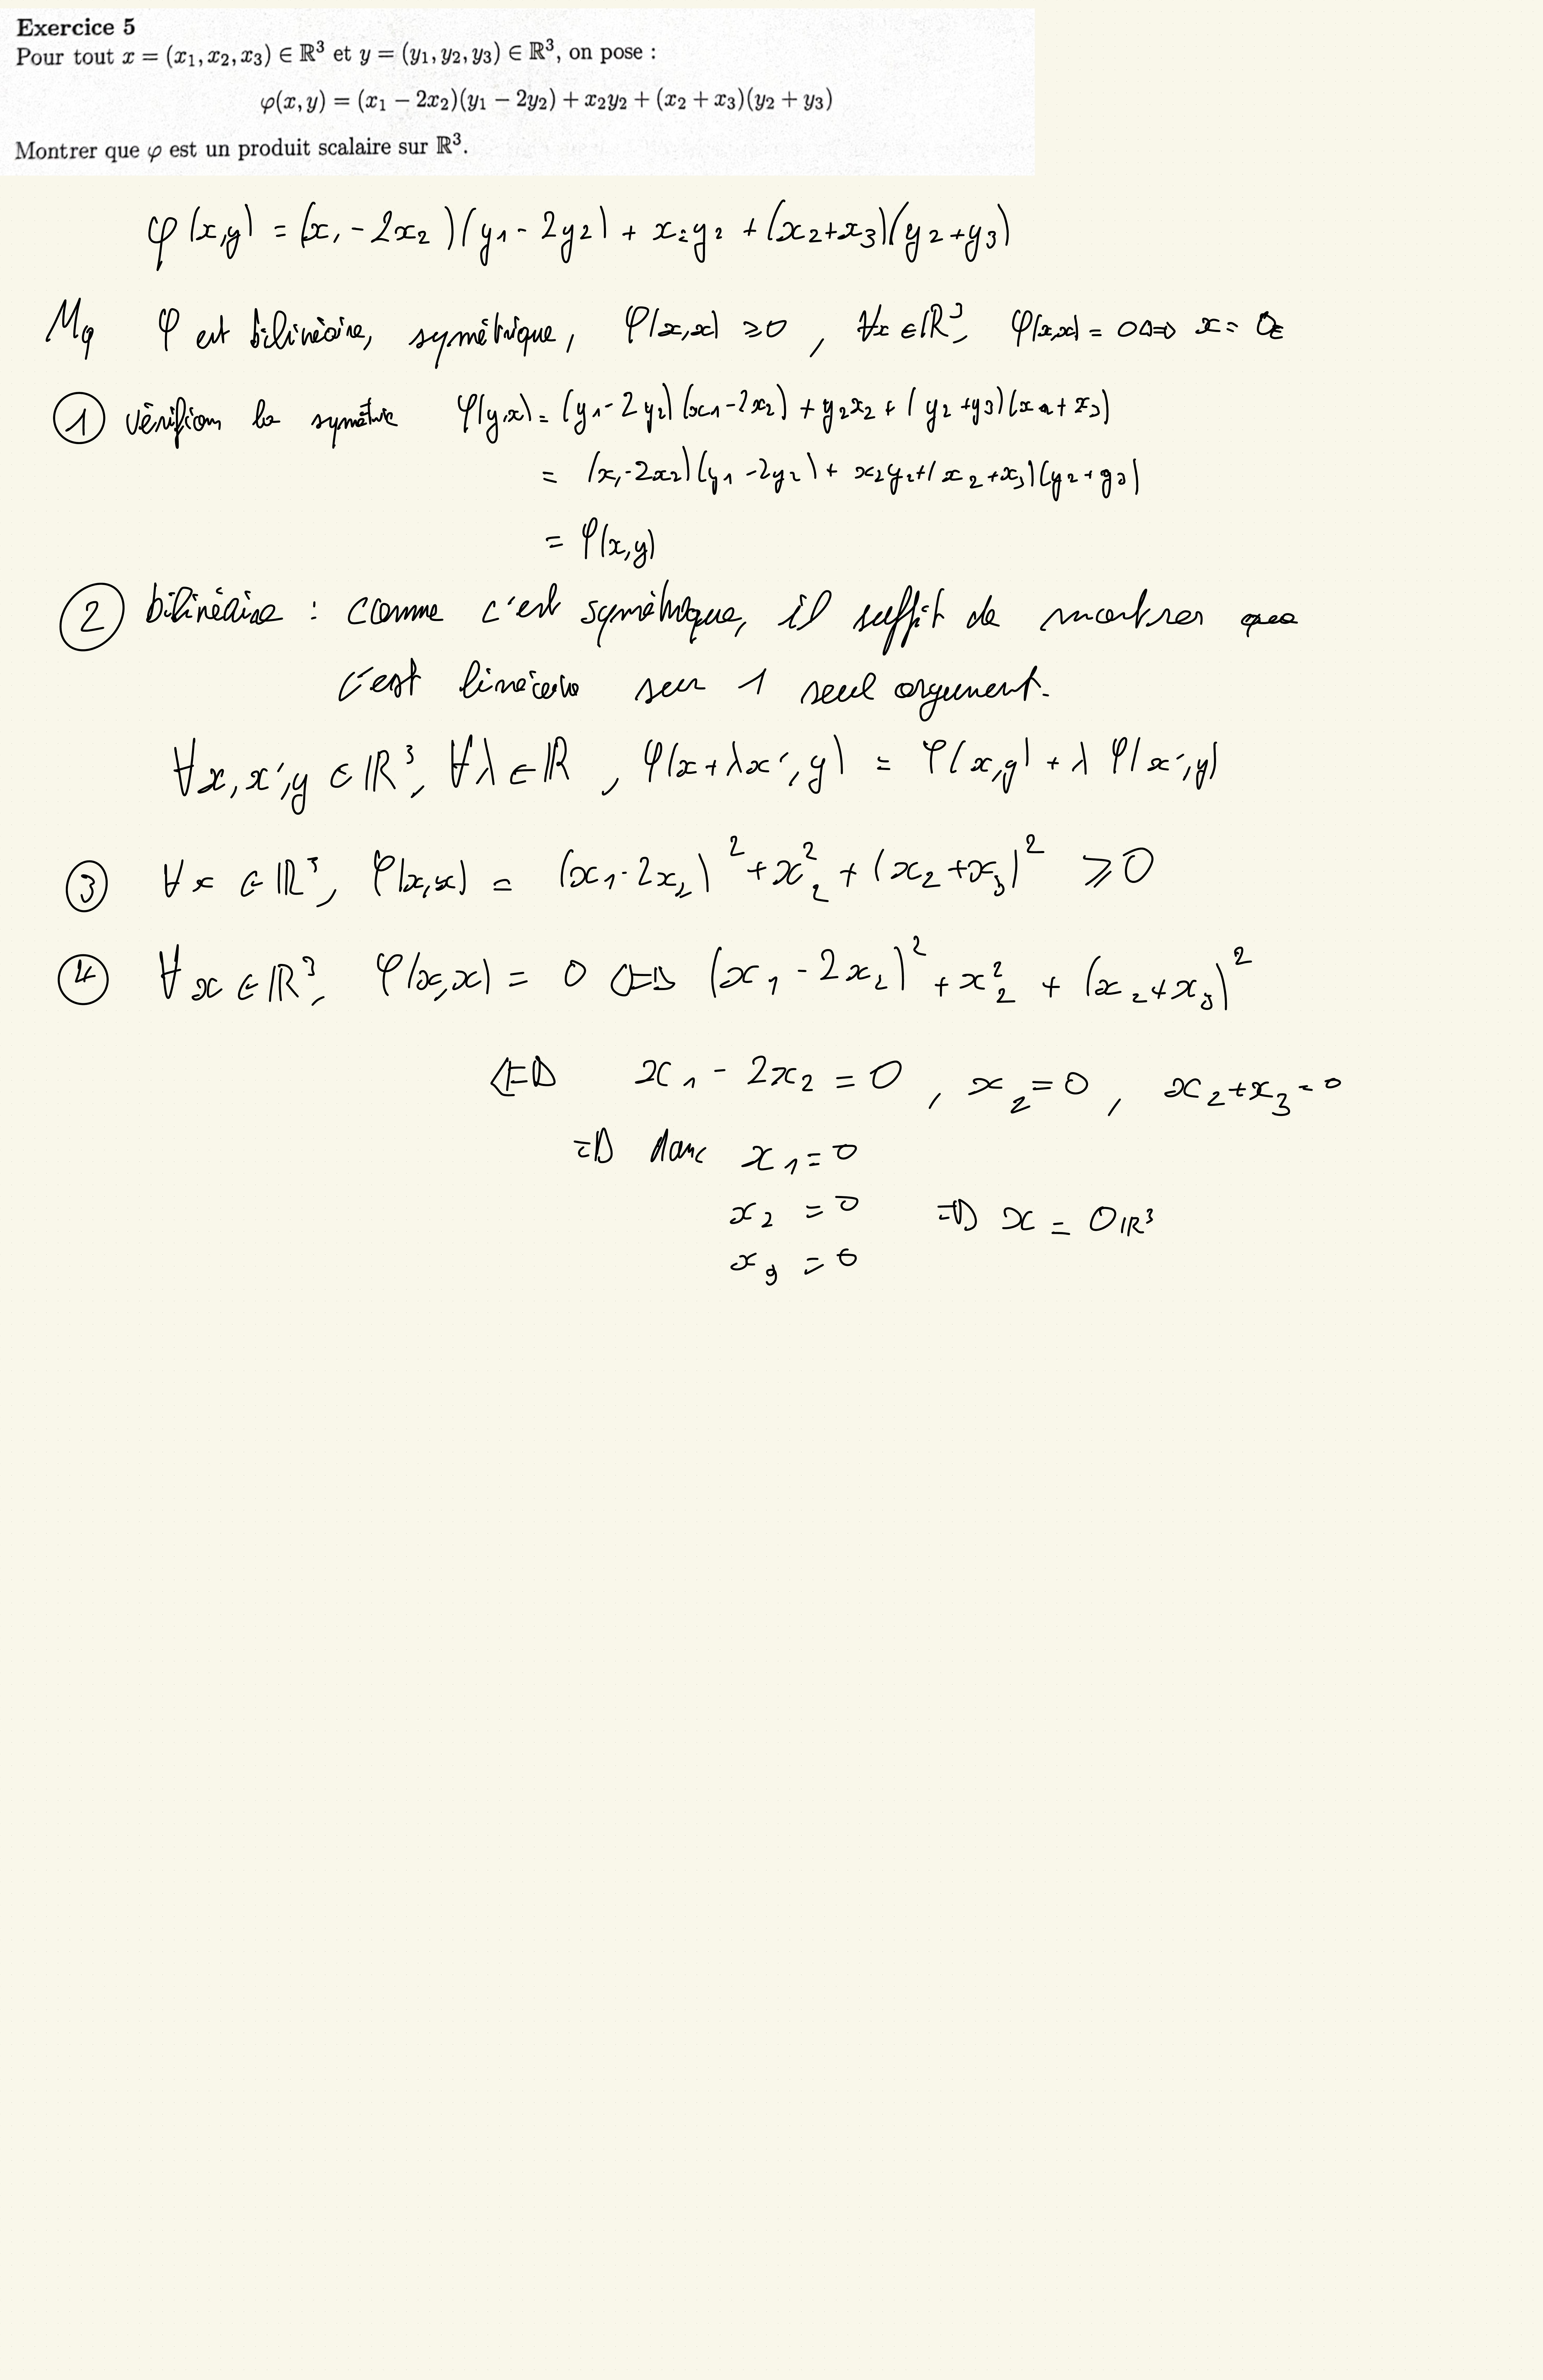 Exercice 5
Pour tout x = (x₁, x₂, x₃) ∈ ℝ³ et y = (y₁, y₂, y₃) ∈ ℝ³, on pose :
φ(x, y) = (x₁ − 2x₂)(y₁ − 2y₂) + x₂y₂ + (x₂ + x₃)(y₂ + y₃)
Montrer que φ est un produit scalaire sur ℝ³.
φ(x,y) = (x₁ - 2x₂)(y₁ - 2y₂) + x₂y₂ + (x₂+x₃)(y₂+y₃)
Mq φ est bilinéaire, symétrique, φ(x,x) ≥0 , ∀x ∈ℝ³, φ(x,x) = 0 ⟺ x = 0E
① vérifions la symétrie φ(y,x) = (y₁-2y₂)(x₁-2x₂) + y₂x₂ + (y₂+y₃)(x₂+x₃)
= (x₁-2x₂)(y₁-2y₂) + x₂y₂+(x₂+x₃)(y₂+y₃)
= φ(x,y)
② bilinéaire : comme c'est symétrique, il suffit de montrer que
c'est linéaire sur 1 seul argument.
∀x, x', y ∈ ℝ³, ∀λ ∈ ℝ , φ(x+λx', y) = φ(x,y) + λ φ(x',y)
③ ∀x ∈ ℝ³, φ(x,x) = (x₁-2x₂)² + x₂² + (x₂+x₃)² ≥ 0
④ ∀x ∈ ℝ³, φ(x,x) = 0 ⟺ (x₁ - 2x₂)² + x₂² + (x₂+x₃)²
⟺ x₁ - 2x₂ = 0 , x₂ = 0 , x₂+x₃ = 0
⟹ donc x₁ = 0
x₂ = 0 ⟹ x = 0ℝ³
x₃ = 0